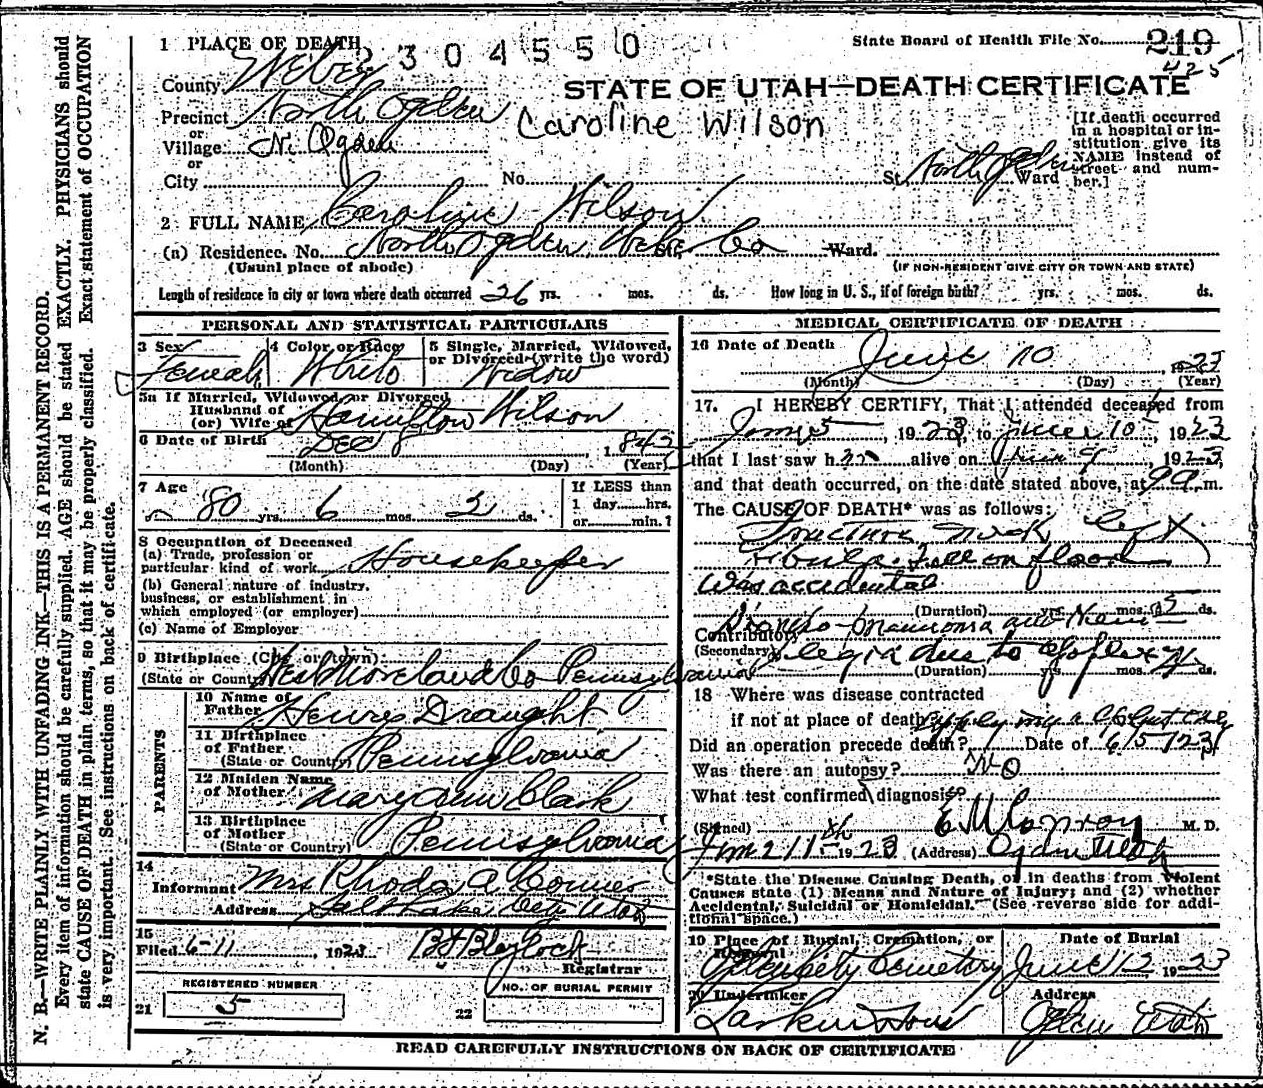 N. B.—WRITE PLAINLY WITH UNFADING INK—THIS IS A PERMANENT RECORD.
Every item of information should be carefully supplied. AGE should be stated EXACTLY. PHYSICIANS should
state CAUSE OF DEATH in plain terms, so that it may be properly classified. Exact statement of OCCUPATION
is very important. See instructions on back of certificate.
1 PLACE OF DEATH
2304550
State Board of Health File No. 219
425
County Weber
STATE OF UTAH—DEATH CERTIFICATE
Precinct North Ogden
Caroline Wilson
or
Village N. Ogden
or
City
No.
St. North Ogden Ward
[If death occurred
in a hospital or in-
stitution give its
NAME instead of
street and num-
ber.]
2 FULL NAME Caroline Wilson
(a) Residence. No. North Ogden, Weber Co St. Ward.
(Usual place of abode)
(IF NON-RESIDENT GIVE CITY OR TOWN AND STATE)
Length of residence in city or town where death occurred 26 yrs. mos. ds. How long in U. S., if of foreign birth? yrs. mos. ds.
PERSONAL AND STATISTICAL PARTICULARS
3 Sex
Female
4 Color or Race
White
5 Single, Married, Widowed,
or Divorced (write the word)
Widow
5a If Married, Widowed or Divorced
Husband of
(or) Wife of Hamilton Wilson
6 Date of Birth Dec 8 1842
(Month) (Day) (Year)
7 Age
80 yrs. 6 mos. 2 ds.
If LESS than
1 day hrs.
or min.?
8 Occupation of Deceased
(a) Trade, profession or
particular kind of work Housekeeper
(b) General nature of industry,
business, or establishment in
which employed (or employer)
(c) Name of Employer
9 Birthplace (City or town)
(State or Country) Westmoreland Co Pennsylvania
PARENTS
10 Name of
Father Henry Draught
11 Birthplace
of Father
(State or Country) Pennsylvania
12 Maiden Name
of Mother Mary Ann Clark
13 Birthplace
of Mother
(State or Country) Pennsylvania
14
Informant Mrs Rhoda A
Address Salt Lake City Utah
15
Filed 6-11, 1923 Blaylock
Registrar
REGISTERED NUMBER
21 5
NO. OF BURIAL PERMIT
22
MEDICAL CERTIFICATE OF DEATH
16 Date of Death June 10 1923
(Month) (Day) (Year)
17. I HEREBY CERTIFY, That I attended deceased from
June 5, 1923, to June 10, 1923
that I last saw h er alive on June 9, 1923,
and that death occurred, on the date stated above, at 9 a m.
The CAUSE OF DEATH* was as follows:
Fracture neck left
Fall on floor
Was accidental
(Duration) yrs. mos. 5 ds.
Contributory
(Secondary) due to Apoplexy
(Duration) yrs. mos. ds.
18 Where was disease contracted
if not at place of death?
Did an operation precede death? Date of 6/5/23
Was there an autopsy? No
What test confirmed diagnosis?
(Signed) E M Conroy M. D.
June 11th 1923 (Address) Ogden Utah
*State the Disease Causing Death, or in deaths from Violent
Causes state (1) Means and Nature of Injury; and (2) whether
Accidental, Suicidal or Homicidal. (See reverse side for addi-
tional space.)
19 Place of Burial, Cremation, or
Removal
Ogden City Cemetery
Date of Burial
June 12 1923
20 Undertaker
Larkin & Sons
Address
Ogden Utah
READ CAREFULLY INSTRUCTIONS ON BACK OF CERTIFICATE